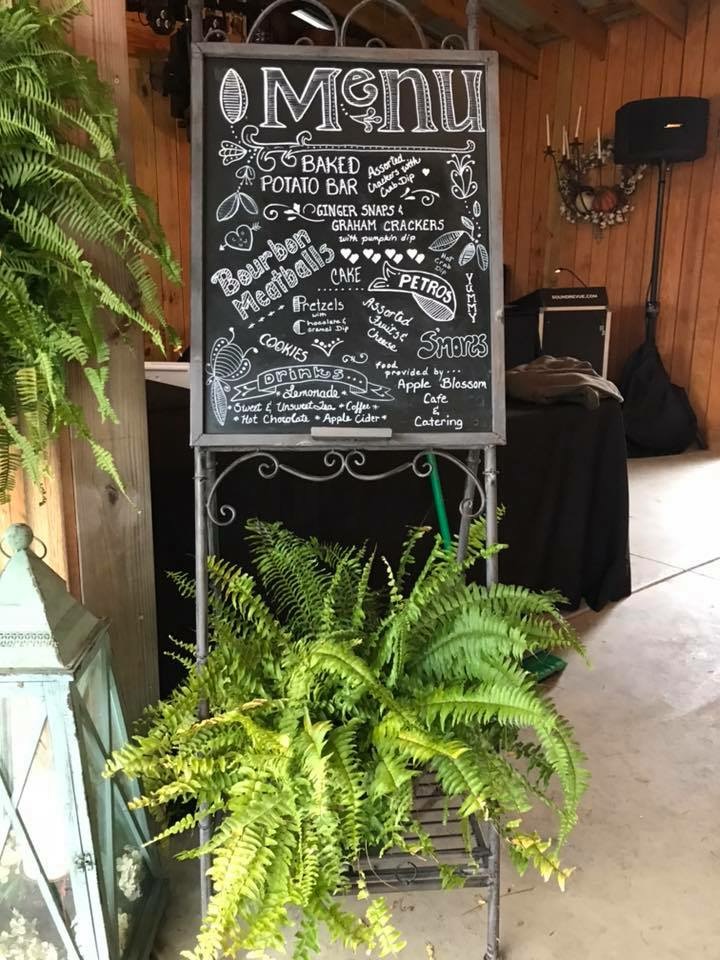 Menu
BAKED
POTATO BAR
Assorted
Crackers with
Crab Dip
GINGER SNAPS &
GRAHAM CRACKERS
with pumpkin dip
Bourbon
Meatballs
CAKE
Hot
Crab
Dip
PETROS
YUMMY
Pretzels
with
Chocolate &
Caramel Dip
Assorted
Fruit &
Cheese
COOKIES
S'mores
DRINKS...
Lemonade
* Sweet & Unsweet Tea * Coffee *
* Hot Chocolate * Apple Cider *
food
provided by...
Apple Blossom
Cafe
&
Catering
SOUNDREVUE.COM